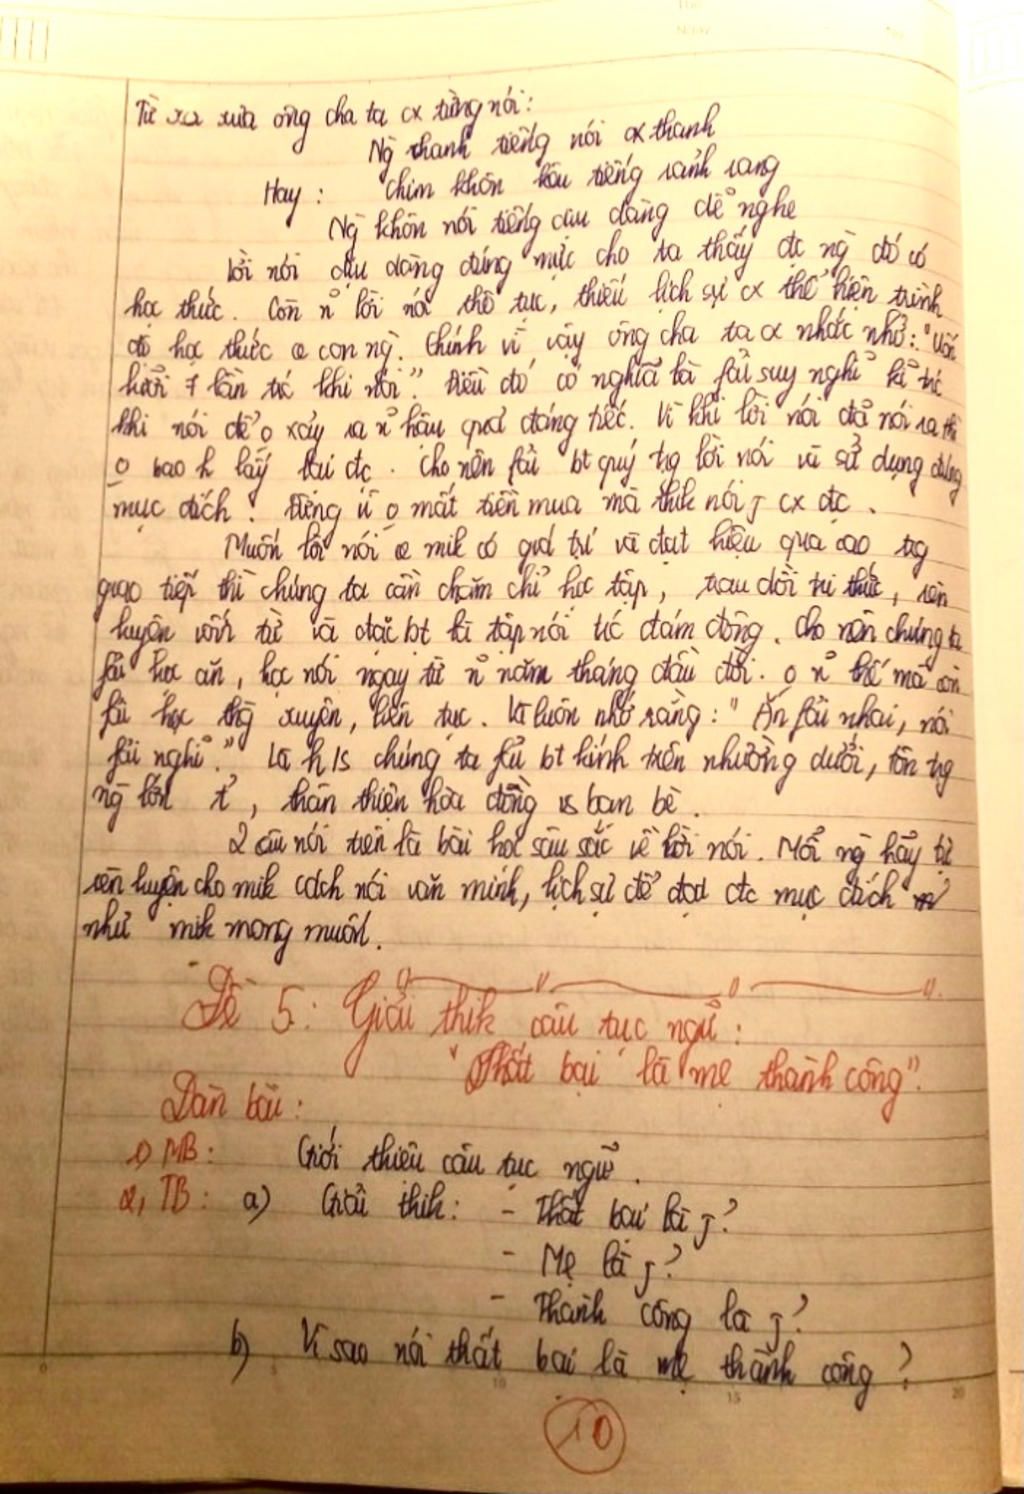 Từ xa xưa ông cha ta cx từng nói:
Ng̀ thanh tiếng nói cx thanh
Hay: Chim khôn kêu tiếng rảnh rang
Ng̀ khôn nói tiếng dịu dàng dễ nghe
Lời nói dịu dàng đúng mực cho ta thấy đc ng̀ đó có
học thức. Còn n~ lời nói thô tục, thiếu lịch sự cx thể hiện trình
độ học thức @ con ng̀. Chính vì vậy ông cha ta cx nhắc nhở: "Uốn
lưỡi 7 lần tc' khi nói". Điều đó có nghĩa là fải suy nghĩ kĩ tc'
khi nói để o xảy ra n~ hậu quả đáng tiếc. Vì khi lời nói đã nói ra thì
o bao h lấy lại đc. Cho nên fải bt quý tg lời nói và sử dụng đúng
mục đích. Đừng vì o mất tiền mua mà thik nói j cx đc.
Muốn lời nói @ mik có giá trị và đạt hiệu quả cao tg
giao tiếp thì chúng ta cần chăm chỉ học tập, trau dồi tri thức, rèn
luyện vốn từ và đặc bt là tập nói tc' đám đông. Cho nên chúng ta
fải học ăn, học nói ngay từ n~ năm tháng đầu đời. o n~ thế mà còn
fải học thg̀ xuyên, liên tục. Và luôn nhớ rằng: "Ăn fải nhai, nói
fải nghĩ." Là h/s chúng ta fải bt kính trên nhường dưới, tôn tg
ng̀ lớn, thân thiện hòa đồng vs bạn bè.
2 câu nói trên là bài học sâu sắc về lời nói. Mỗi ng̀ hãy tự
rèn luyện cho mik cách nói văn minh, lịch sự để đạt đc mục đích
như mik mong muốn.
Đề 5: Giải thik câu tục ngữ:
"Thất bại là mẹ thành công".
Dàn bài:
1) MB: Giới thiệu câu tục ngữ.
2, TB: a) Giải thik: - Thất bại là j?
- Mẹ là j?
- Thành công là j?
b) Vì sao nói thất bại là mẹ thành công?
10